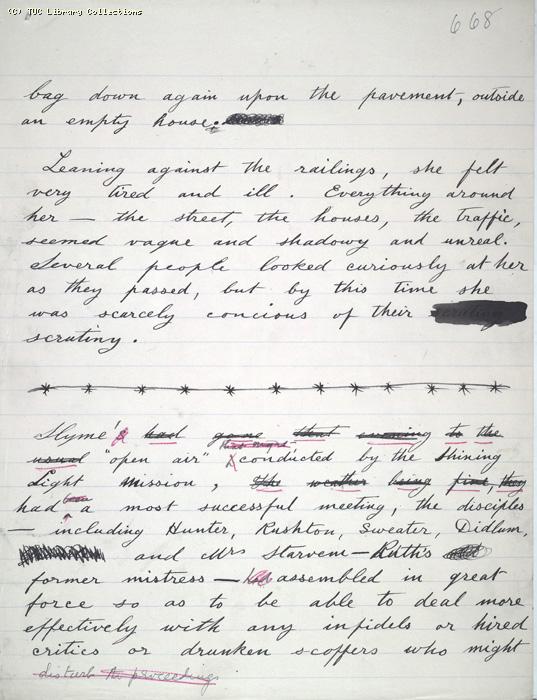 (C) TUC Library Collections
668
bag down again upon the pavement, outside
an empty house.
Leaning against the railings, she felt
very tired and ill. Everything around
her — the street, the houses, the traffic,
seemed vague and shadowy and unreal.
Several people looked curiously at her
as they passed, but by this time she
was scarcely concious of their
scrutiny.
Slyme's had gone that evening to the
usual "open air" condicted by the Shining
Light Mission, The weather being fine, they
had been a most successful meeting, the disciples
— including Hunter, Rushton, Sweater, Didlum,
and Mrs Starvem — Ruth's
former mistress — had assembled in great
force so as to be able to deal more
effectively with any infidels or hired
critics or drunken scoffers who might
disturb the proceedings